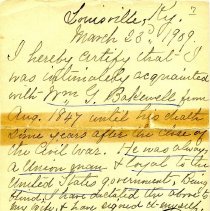 Louisville, Ky.
March 23d 1909.
I hereby certify that I
was intimately acquainted
with Wm G. Bakewell from
Aug. 1847 until his death
some years after the close of
the Civil War. He was always
a Union man & loyal to the
United States government. Being
blind, I have dictated this report to
my & have signed it myself.